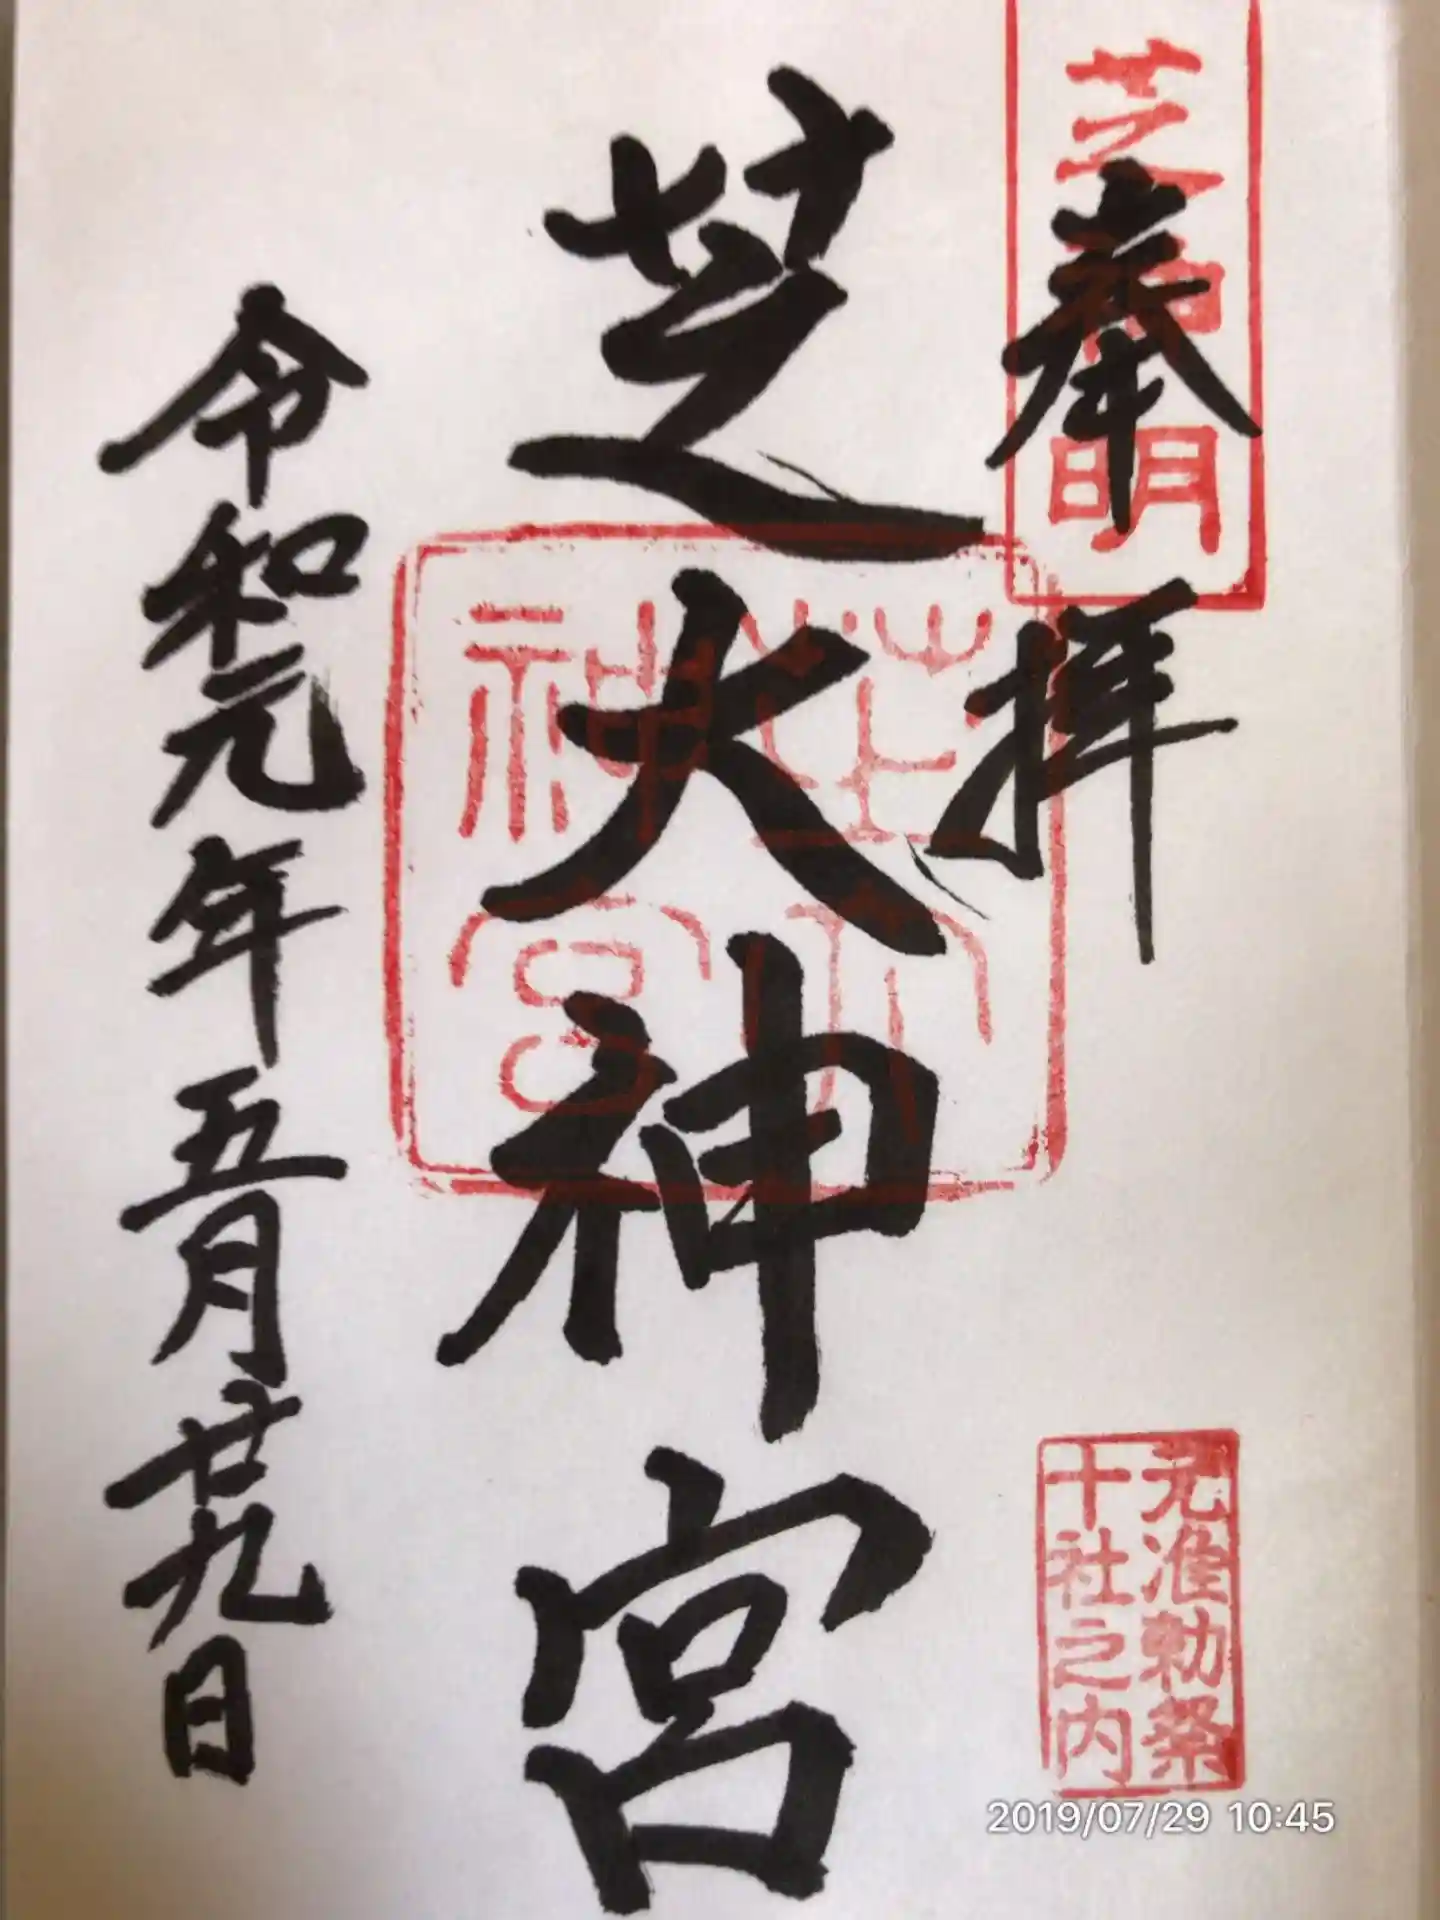 芝神明
奉拝
元准勅祭
十社之内
芝大神宮
芝大神宮
令和元年五月廿九日
2019/07/29 10:45